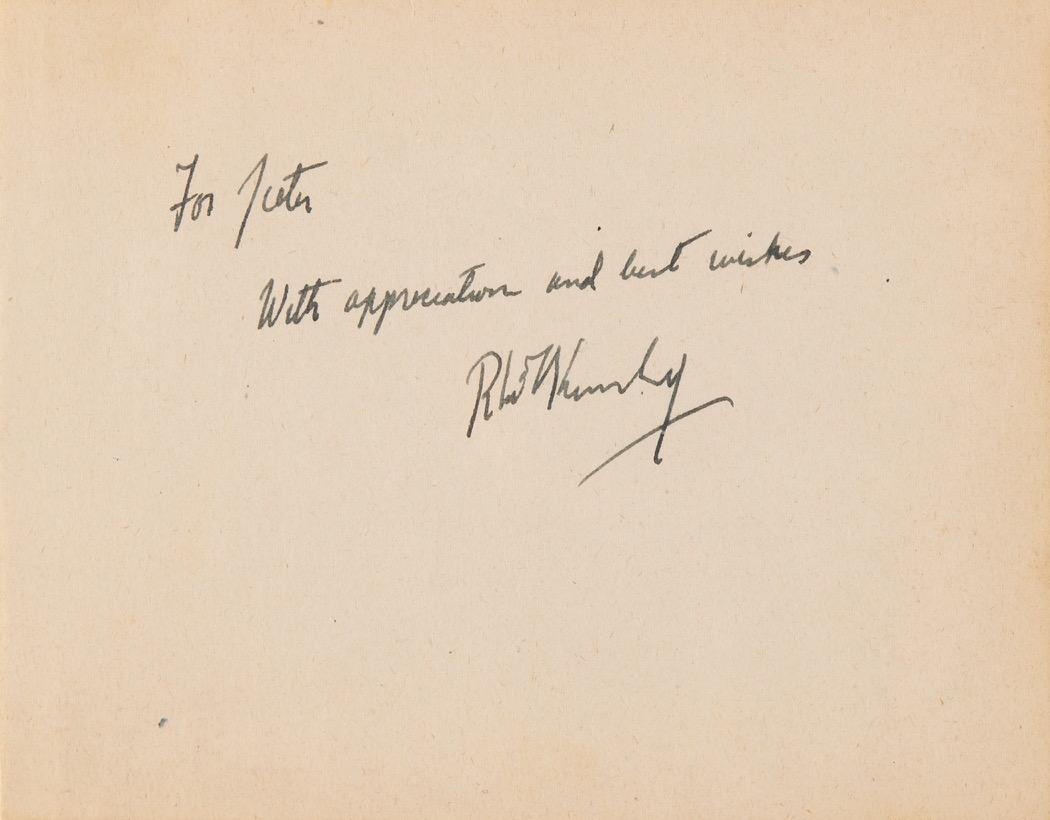 For Peter
With appreciation and best wishes
Robt Kennedy